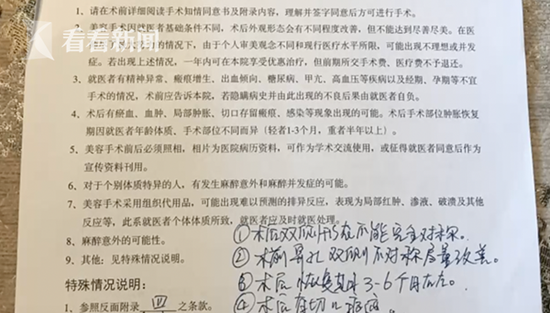 看看新闻
1、请在术前详细阅读手术知情同意书及附录内容，理解并签字同意后方可进行手术。
2、美容手术因就医者基础条件不同，术后外观形态会有不同程度改善，但不能达到尽善尽美。在医
情况下，由于个人审美观念不同和现行医疗水平所限，可能出现不理想或并发
症。若出现上述情况，一年内可在本院享受优惠治疗，但前期所交手术费、医疗费不予退还。
3、就医者有精神异常、瘢痕增生、出血倾向、糖尿病、甲亢、高血压等疾病以及经期、孕期等不宜
手术的情况，术前应告诉本院，若隐瞒病史并由此出现的不良后果由就医者自负。
4、术后有瘀血、血肿、局部肿胀、切口存留瘢痕、感染等现象出现的可能。术后手术部位肿胀恢复
期因就医者年龄体质、手术部位不同而异（轻者1-3个月，重者半年以上）。
5、美容手术前后必须照相，相片为医院病历资料，可作为学术交流使用，或征得就医者同意后作为
宣传资料刊用。
6、对于个别体质特异的人，有发生麻醉意外和麻醉并发症的可能。
7、美容手术采用组织代用品，可能出现难以预测的排异反应，表现为局部红肿、渗液、破溃及其他
反应等，此系就医者个体体质所致，就医者应及时就医处理。
8、麻醉意外的可能性。
9、其他：见特殊情况说明。
① 术后双侧 不能完全对称。
② 术前鼻孔双侧不对称尽量改善。
特殊情况说明：
③ 术后恢复期3-6个月左右。
1、参照反面附录 四 之条款。
④ 术后有切口瘢痕